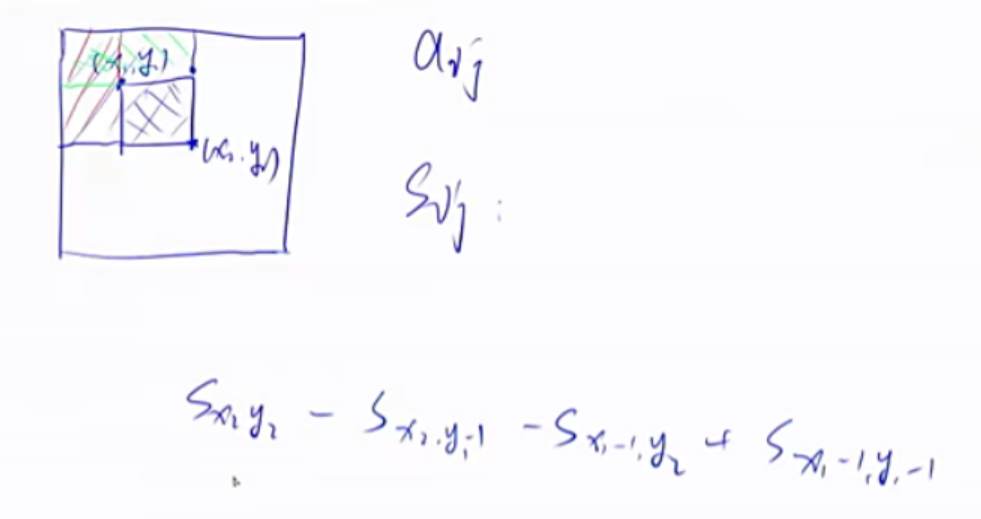 (x₁, y₁)
a i j
(x₂, y₂)
S i j :
S x₂ y₂ - S x₂, y₁-1 - S x₁-1, y₂ + S x₁-1, y₁-1